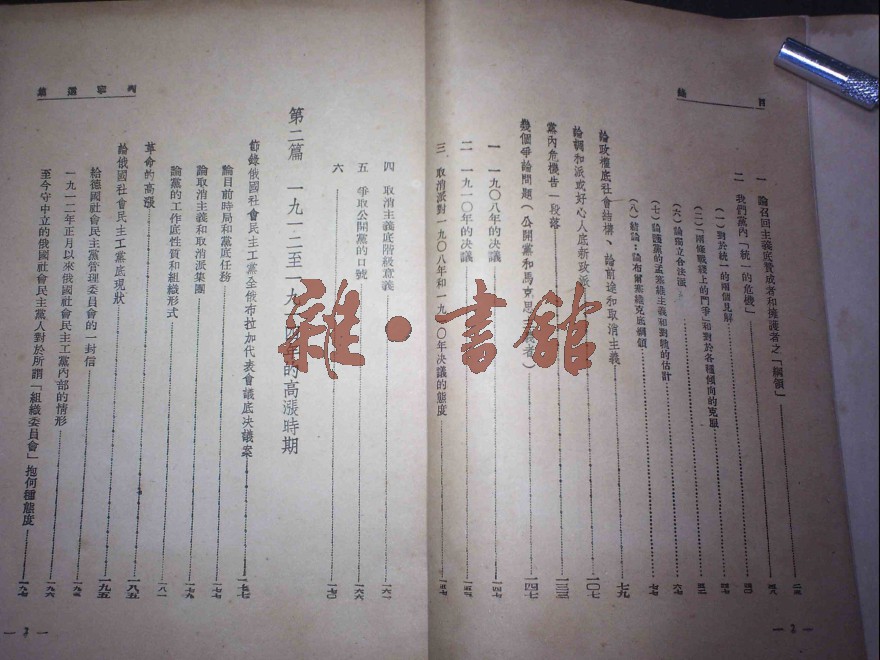 目錄
一 論召回主義底贊成者和擁護者之「綱領」
二 我們黨內「統一的危機」
（一）對於統一的兩個見解
（二）「兩條戰綫上的鬥爭」和對於各種傾向的克服
（六）論獨立合法派
（七）論護黨的孟塞維主義和對牠的估計
（八）結論：論布爾塞維克底綱領
論政權底社會結構、論前途和取消主義 七九
論調和派或好心人底新政派 一〇七
黨內危機告一段落 一三三
幾個爭論問題（公開黨和馬克思 者） 一四七
一 一九〇八年的決議 一四七
二 一九一〇年的決議
三 取消派對一九〇八年和一九一〇年決議的態度
— 2 —
列寧選集
四 取消主義底階級意義 一六一
五 爭取公開黨的口號 一六六
六 一七〇
第二篇 一九一二至一九一四年的高漲時期
節錄俄國社會民主工黨全俄布拉加代表會議底決議案 一七七
論目前時局和黨底任務 一七七
論取消主義和取消派集團 一七九
論黨的工作底性質和組織形式 一八一
革命的高漲 一八五
論俄國社會民主工黨底現狀 一九五
給德國社會民主黨管理委員會的一封信
一九一二年正月以來俄國社會民主工黨內部的情形 一九六
至今守中立的俄國社會民主黨人對於所謂「組織委員會」抱何種態度 一九七
— 3 —
雜·書館